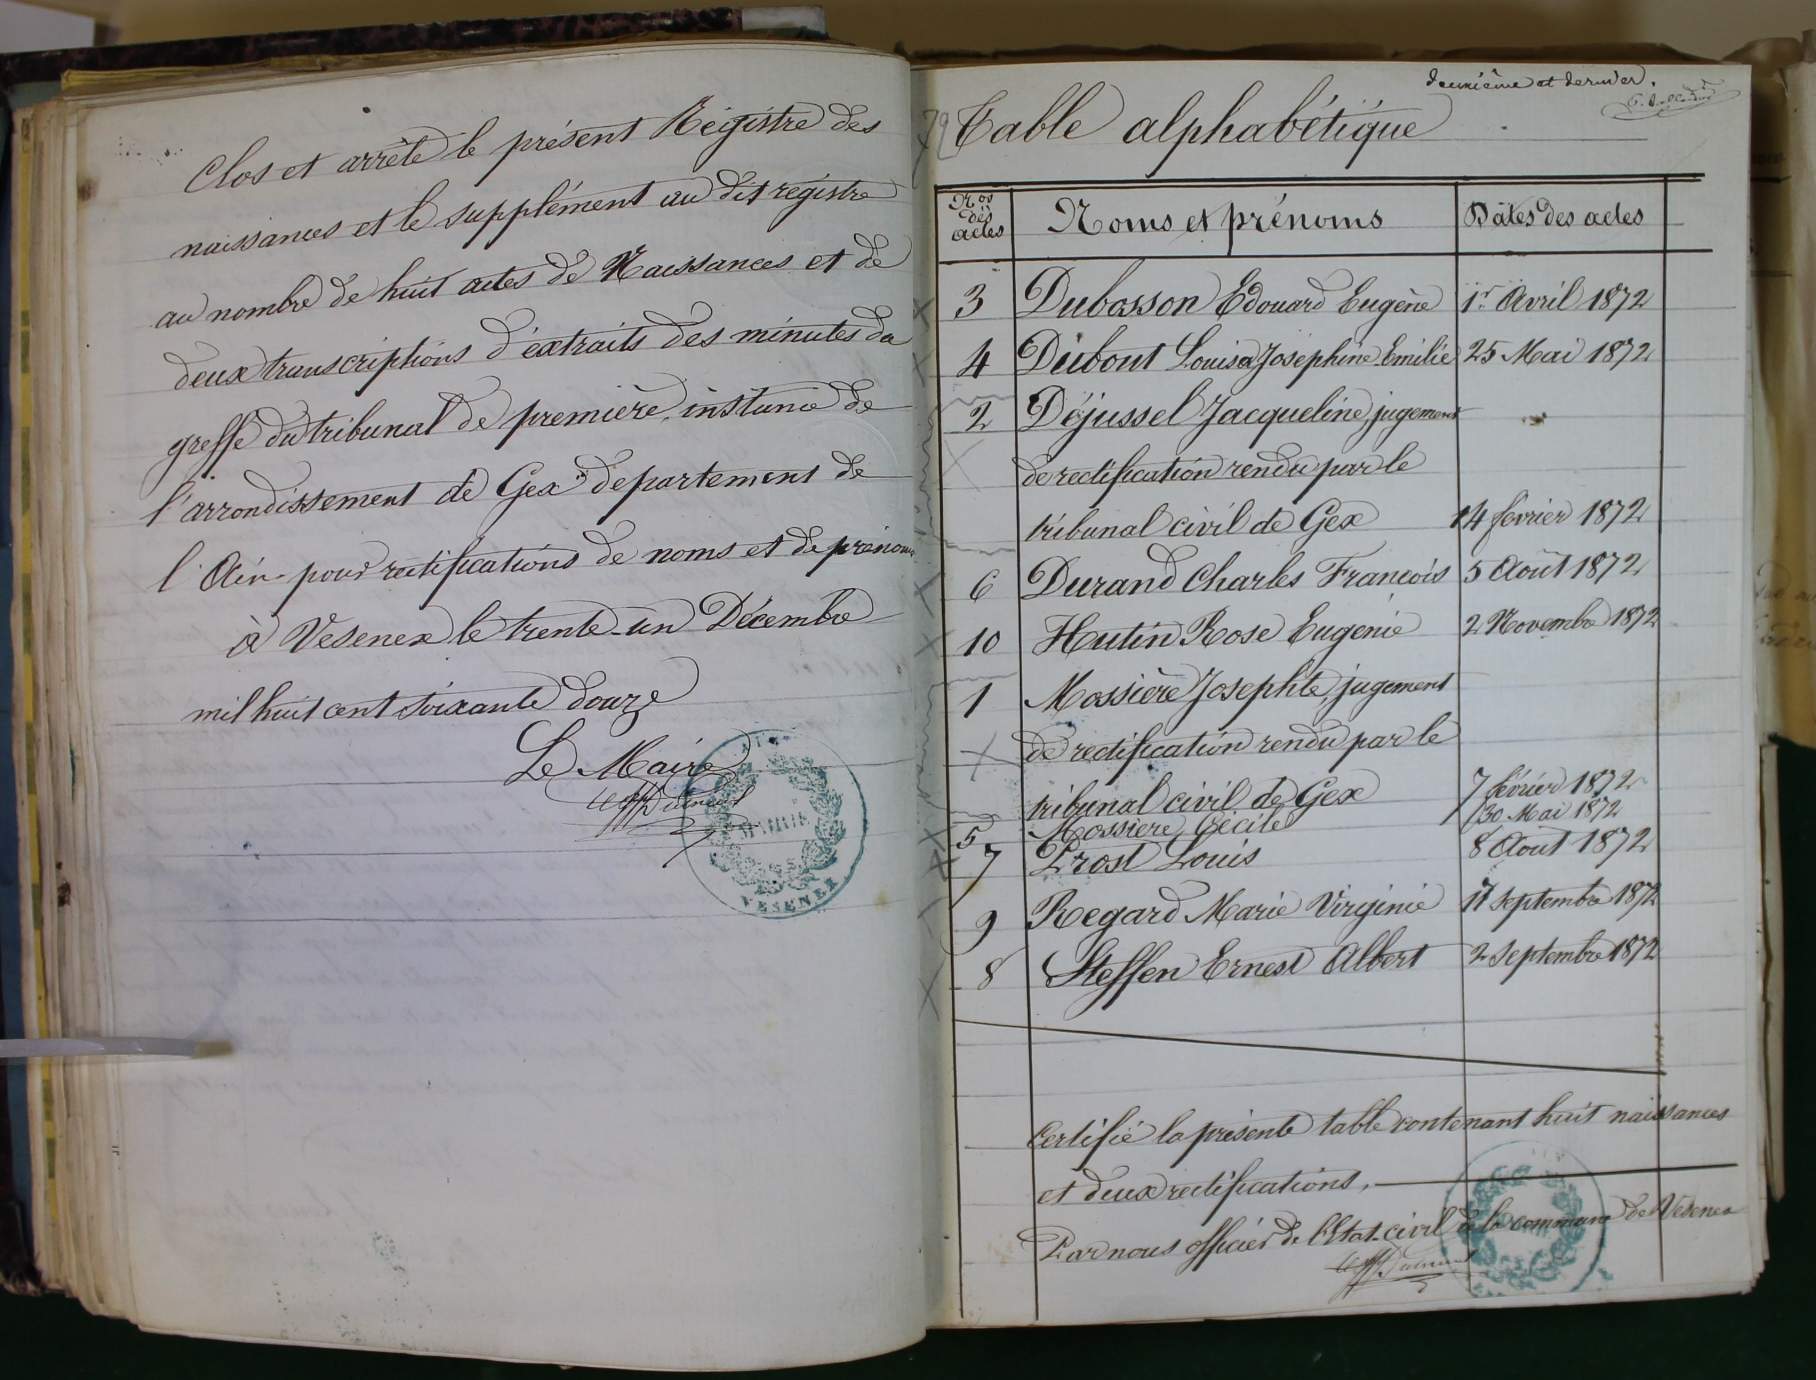 Clos et arrêté le présent Régistre des
naissances et le supplément au dit régistre
au nombre de huit actes de Naissances et de
deux transcriptions d'éxtraits des minutes du
greffe du tribunal de première instance de
l'arrondissement de Gex département de
l'Ain pour rectifications de noms et de prénoms
à Vesenex le trente-un Décembre
mil huit cent soixante douze
Le Maire
MAIRIE
VESENEX
deuxième et dernier.
72 Table alphabétique
Nos des actes Noms et prénoms Dates des actes
3 Dubosson Edouard Eugène 1r Avril 1872
4 Dubout Louisa Josephine Emilie 25 Mai 1872
2 Déjussel Jacqueline, jugement
de rectification rendu par le
tribunal civil de Gex 14 fevrier 1872
6 Durand Charles Francois 5 Août 1872
10 Hutin Rose Eugenie 2 Novembre 1872
1 Mossière Josephte, jugement
de rectification rendu par le
tribunal civil de Gex 7 février 1872
5 Mossiere Cécile 30 Mai 1872
7 Prost Louis 8 Août 1872
9 Regard Marie Virginie 17 Septembre 1872
8 Steffen Ernest Albert 2 Septembre 1872
Certifié la présente table contenant huit naissances
et deux rectifications,
Par nous officier de l'Etat-civil de la commune de Vesenex